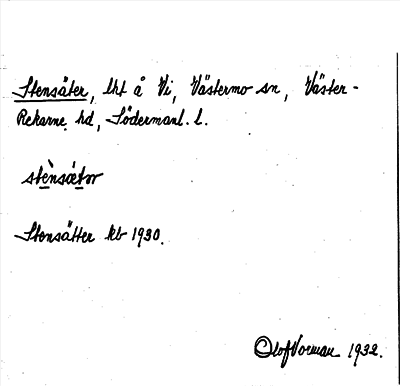 Stensäter, lht å Vi, Västermo sn, Väster-
Rekarne hd, Södermanl. l.
stènsǽtər
Stensätter kb 1930.
Olof Vorman 1932.